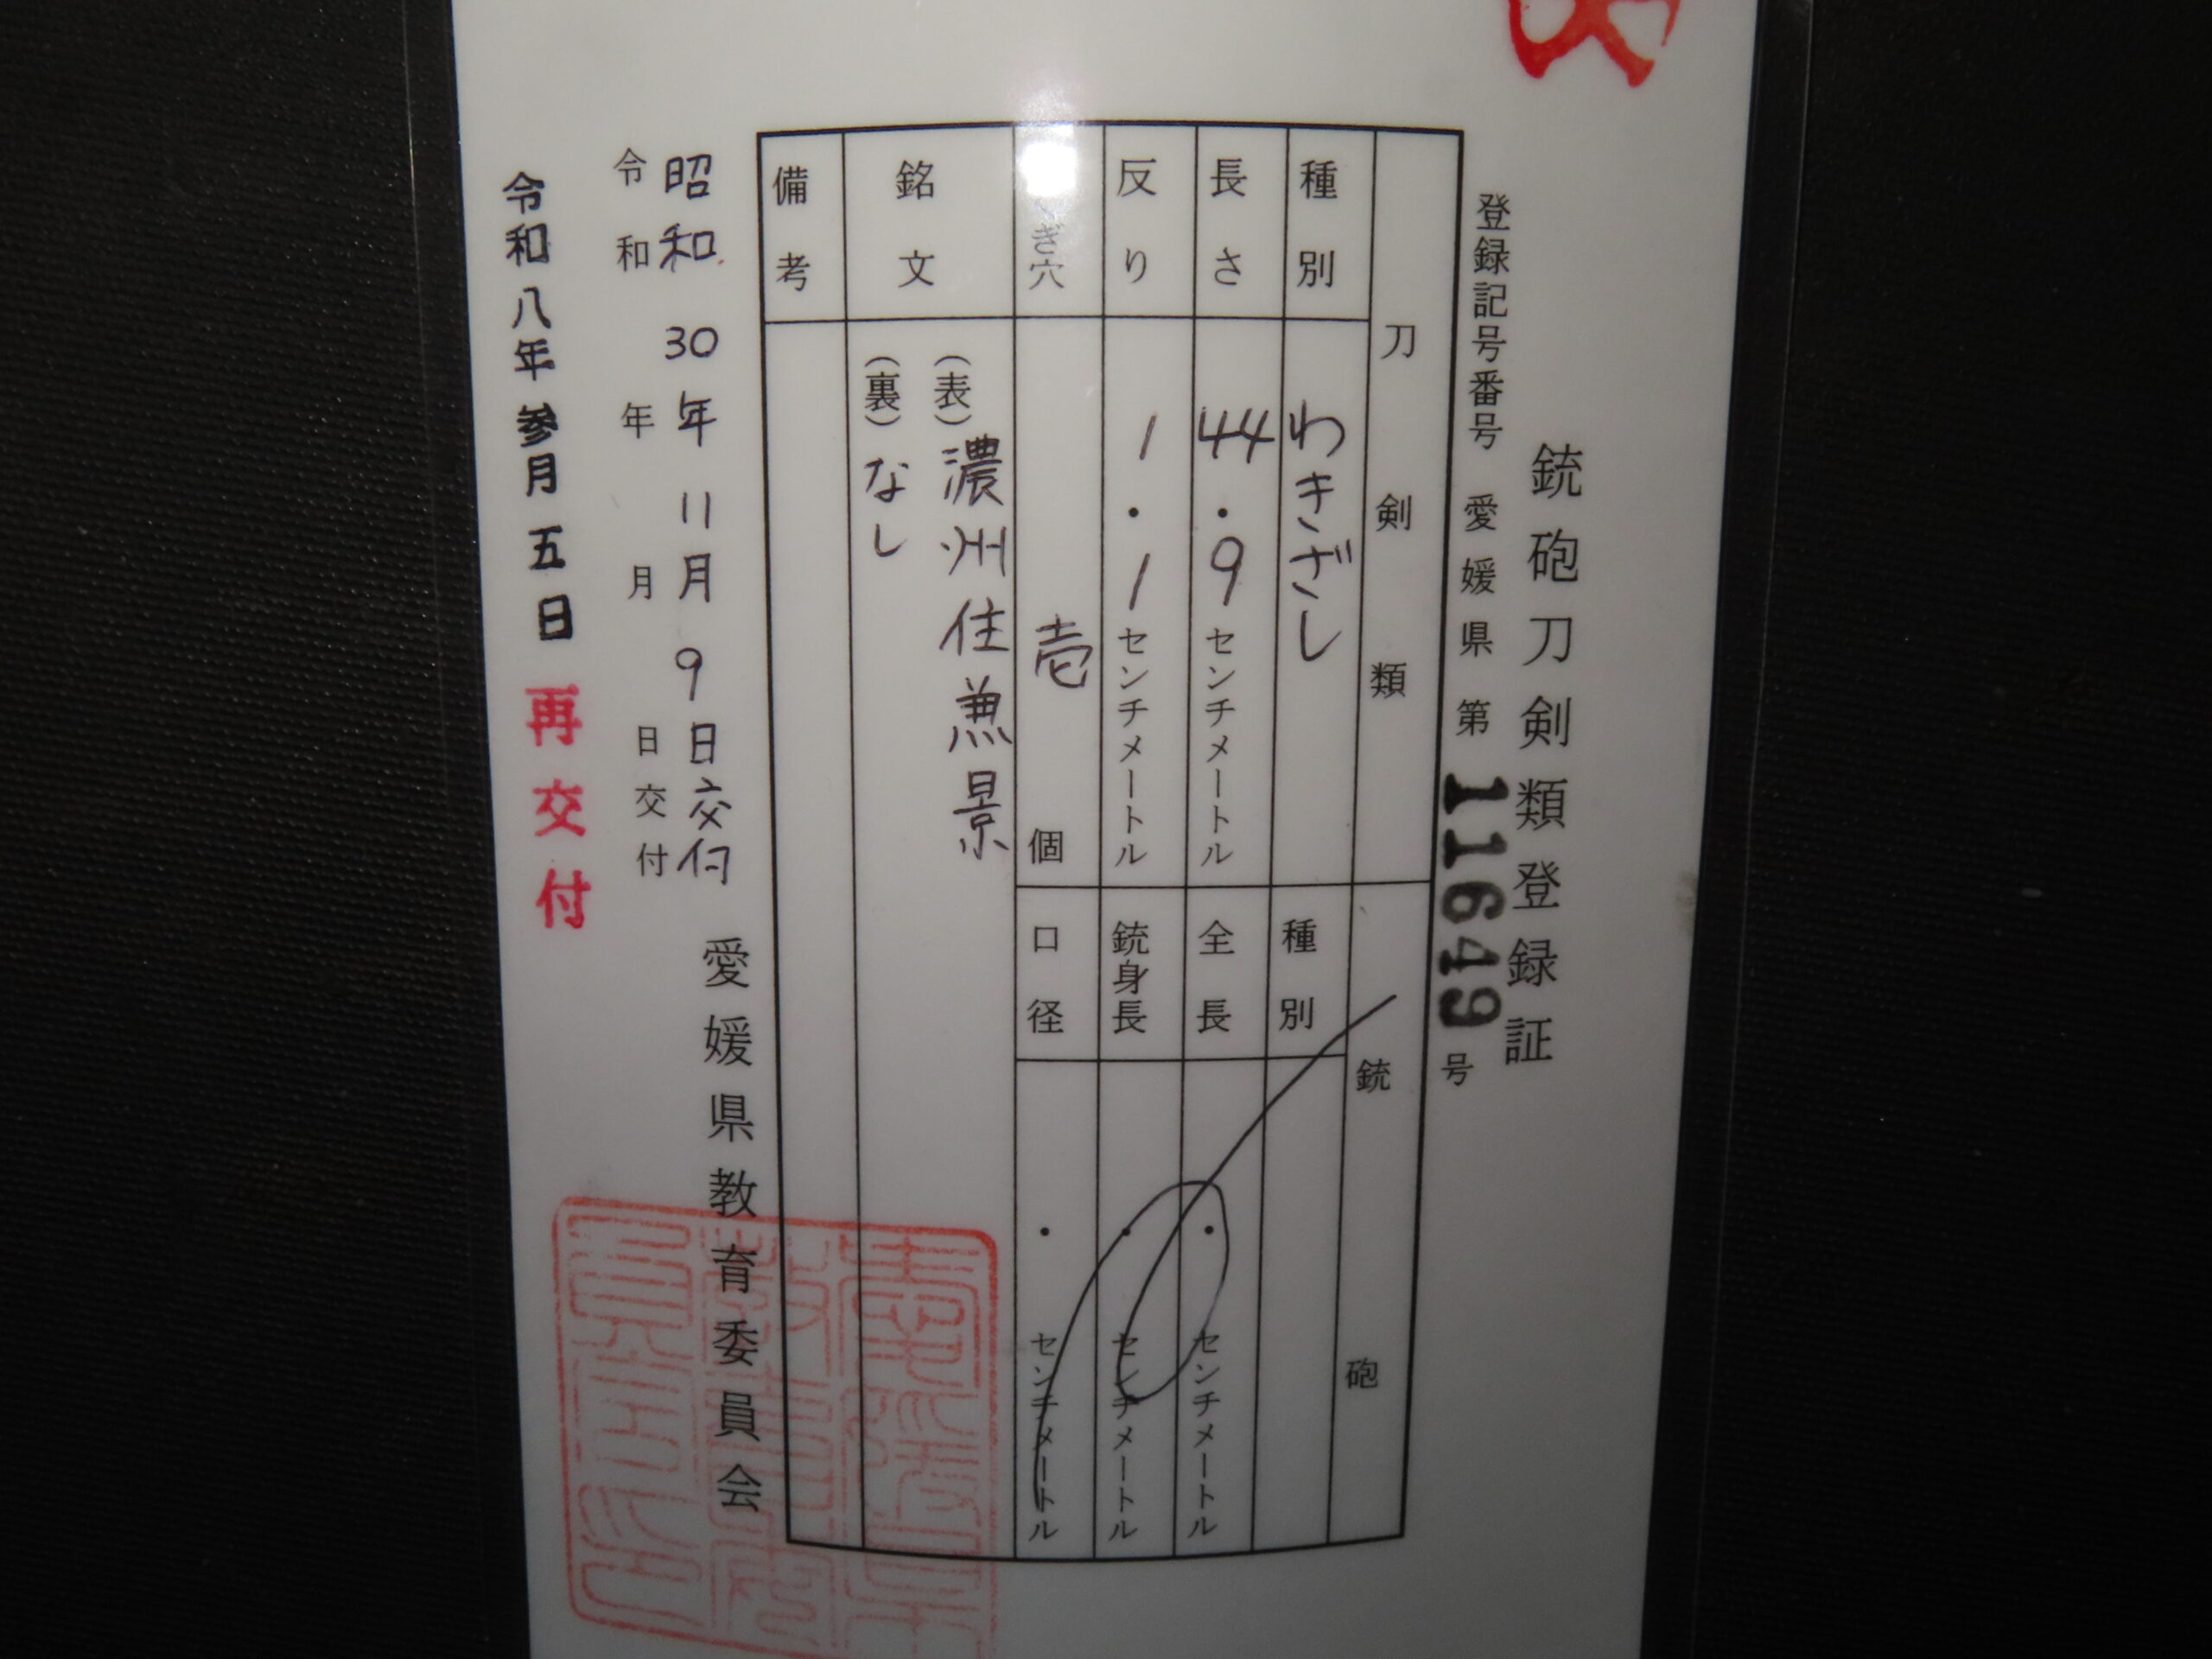 銃砲刀剣類登録証
登録記号番号 愛媛県 第 11649 号
刀剣類
種別 わきざし
長さ 44.9 センチメートル
反り 1.1 センチメートル
ぎ穴 壱 個
銘文 (表) 濃州住兼景
(裏) なし
備考
銃砲
種別
全長 ・ センチメートル
銃身長 ・ センチメートル
口径 ・ センチメートル
昭和30年11月9日交付
令和 年 月 日交付
愛媛県教育委員会
令和八年参月五日 再交付